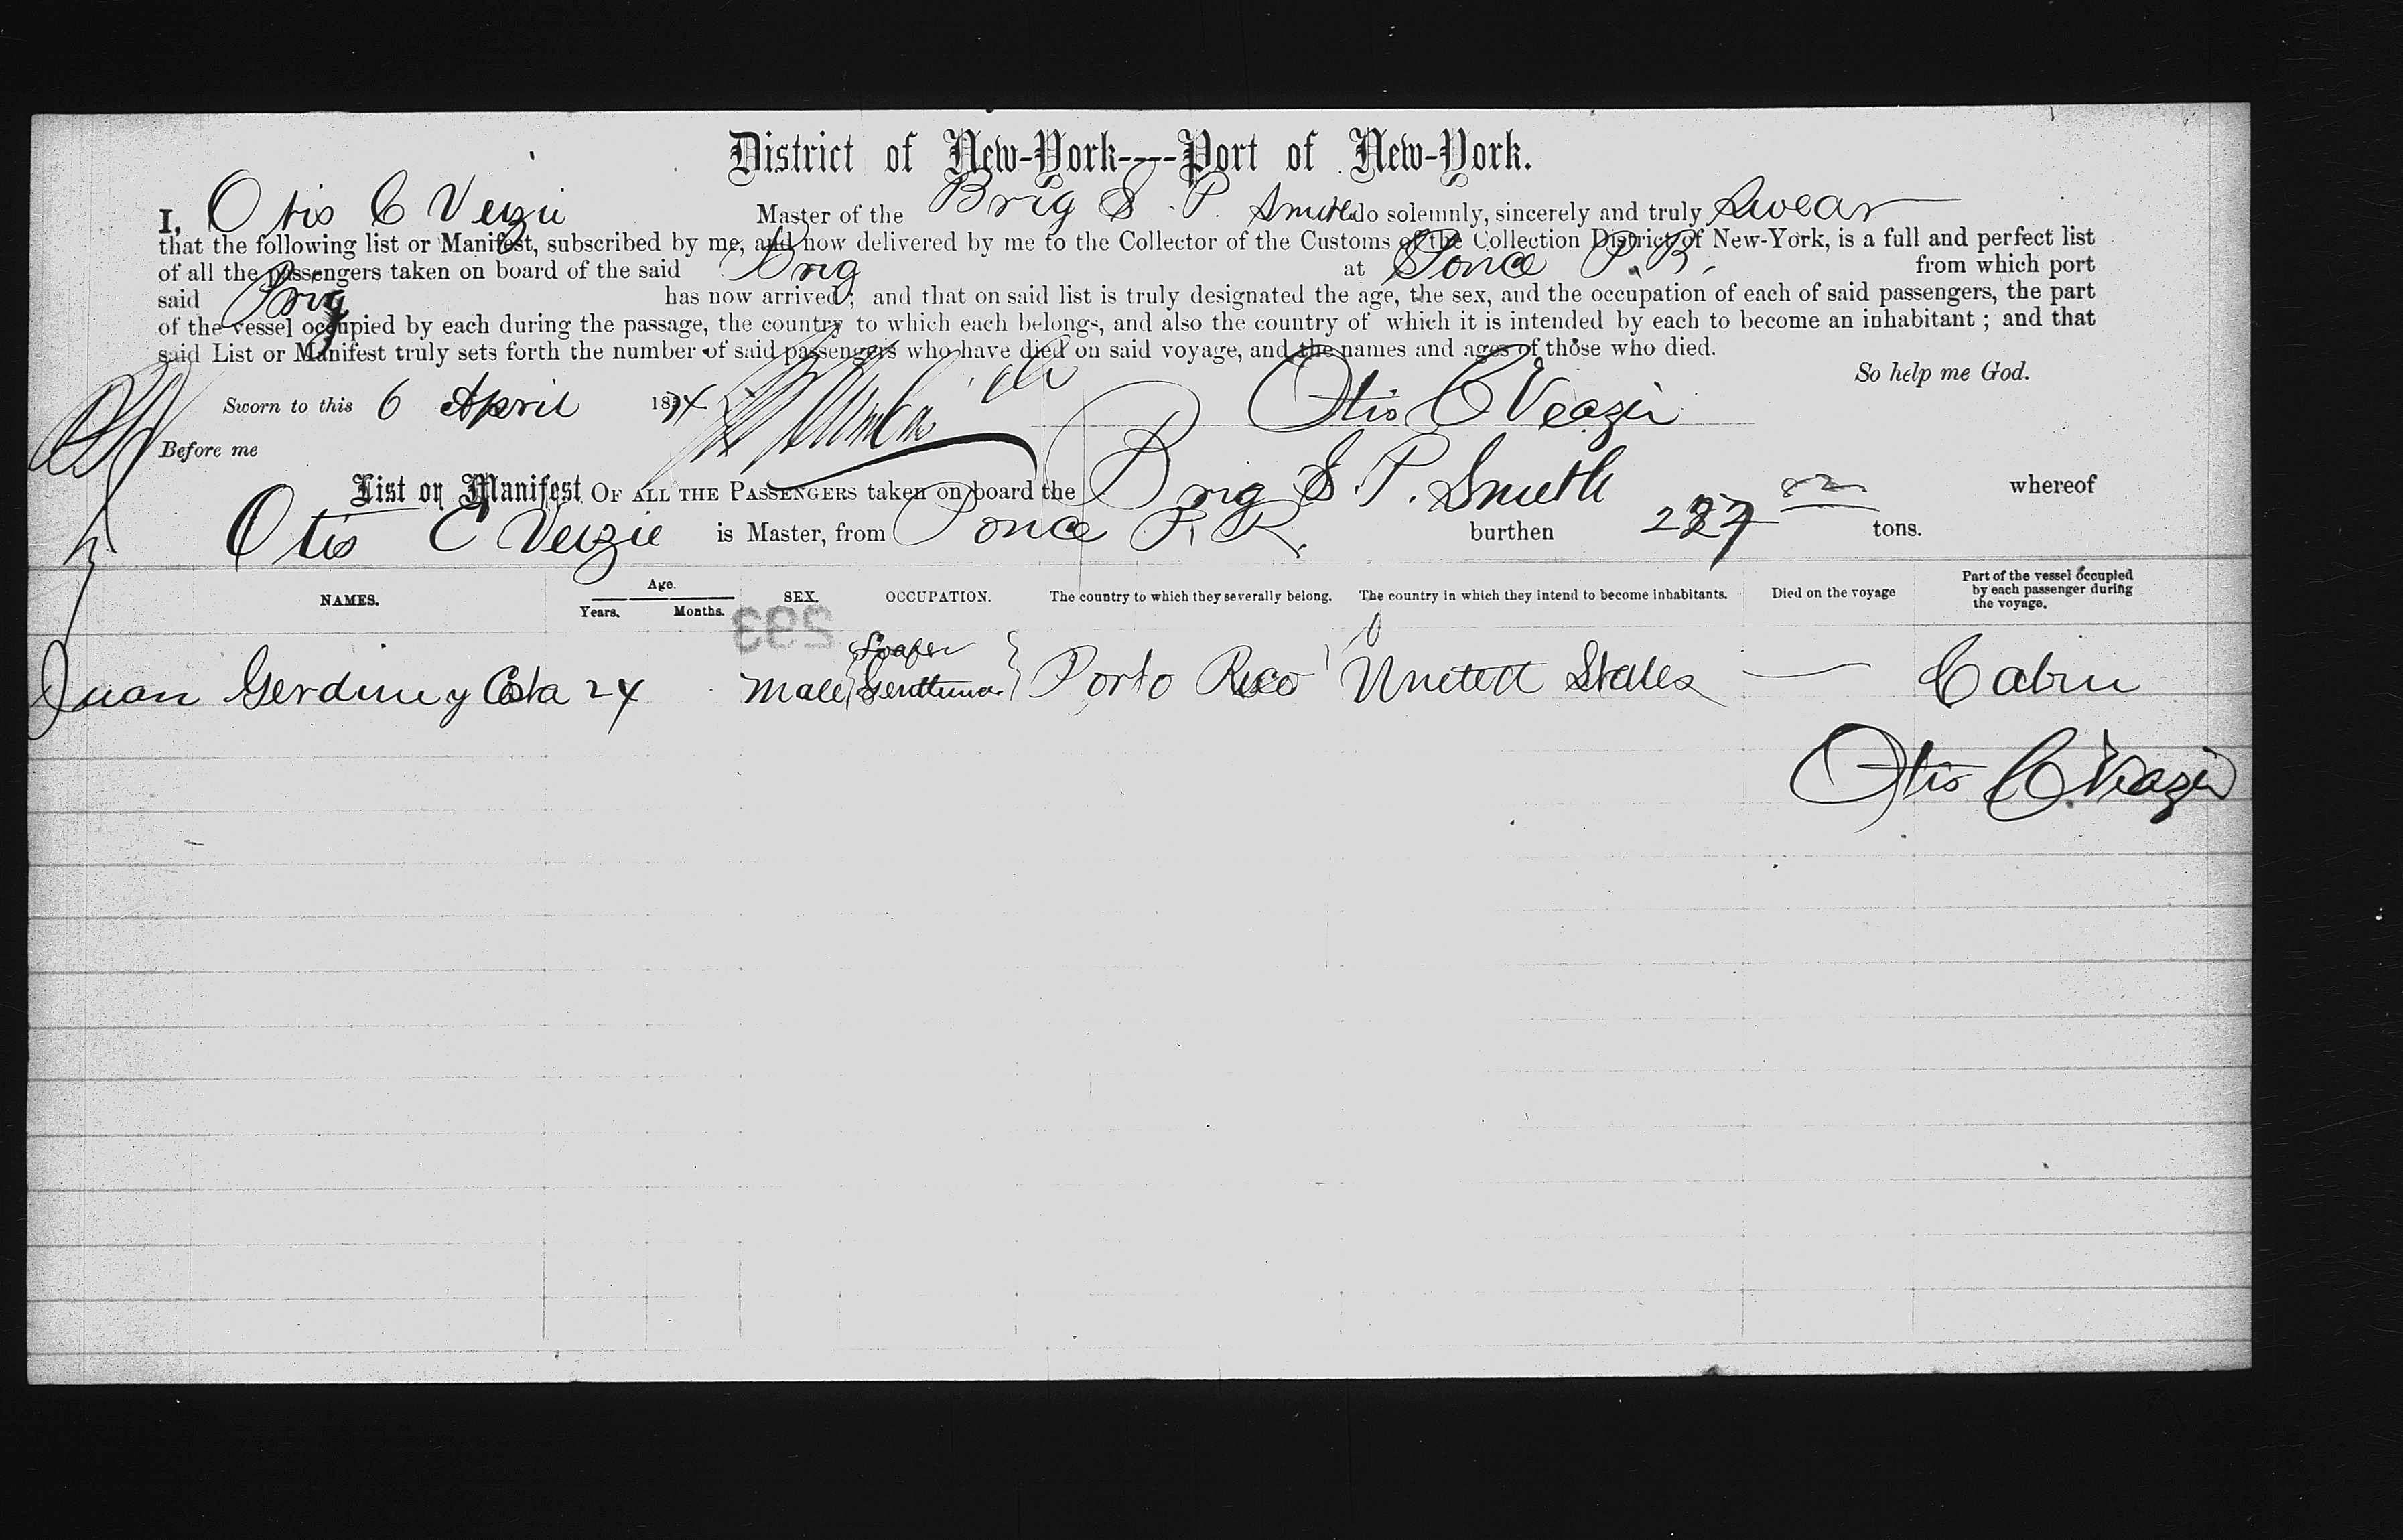 District of New-York----Port of New-York.
I, Otis C Veazie Master of the Brig S. P. Smith do solemnly, sincerely and truly Swear
that the following list or Manifest, subscribed by me, and now delivered by me to the Collector of the Customs of the Collection District of New-York, is a full and perfect list
of all the passengers taken on board of the said Brig at Ponce P. R. from which port
said Brig has now arrived; and that on said list is truly designated the age, the sex, and the occupation of each of said passengers, the part
of the vessel occupied by each during the passage, the country to which each belongs, and also the country of which it is intended by each to become an inhabitant; and that
said List or Manifest truly sets forth the number of said passengers who have died on said voyage, and the names and ages of those who died.
So help me God.
Sworn to this 6 April 1874 Otis C Veazie
Before me
List or Manifest OF ALL THE PASSENGERS taken on board the Brig S. P. Smith whereof
Otis C Veazie is Master, from Ponce P. R. burthen tons.
NAMES. Age. Years. Months. SEX. OCCUPATION. The country to which they severally belong. The country in which they intend to become inhabitants. Died on the voyage Part of the vessel occupied by each passenger during the voyage.
293
Loafer
Juan Gerdine y Costa 24 Male Gentleman Porto Rico United States — Cabin
Otis C. Veazie